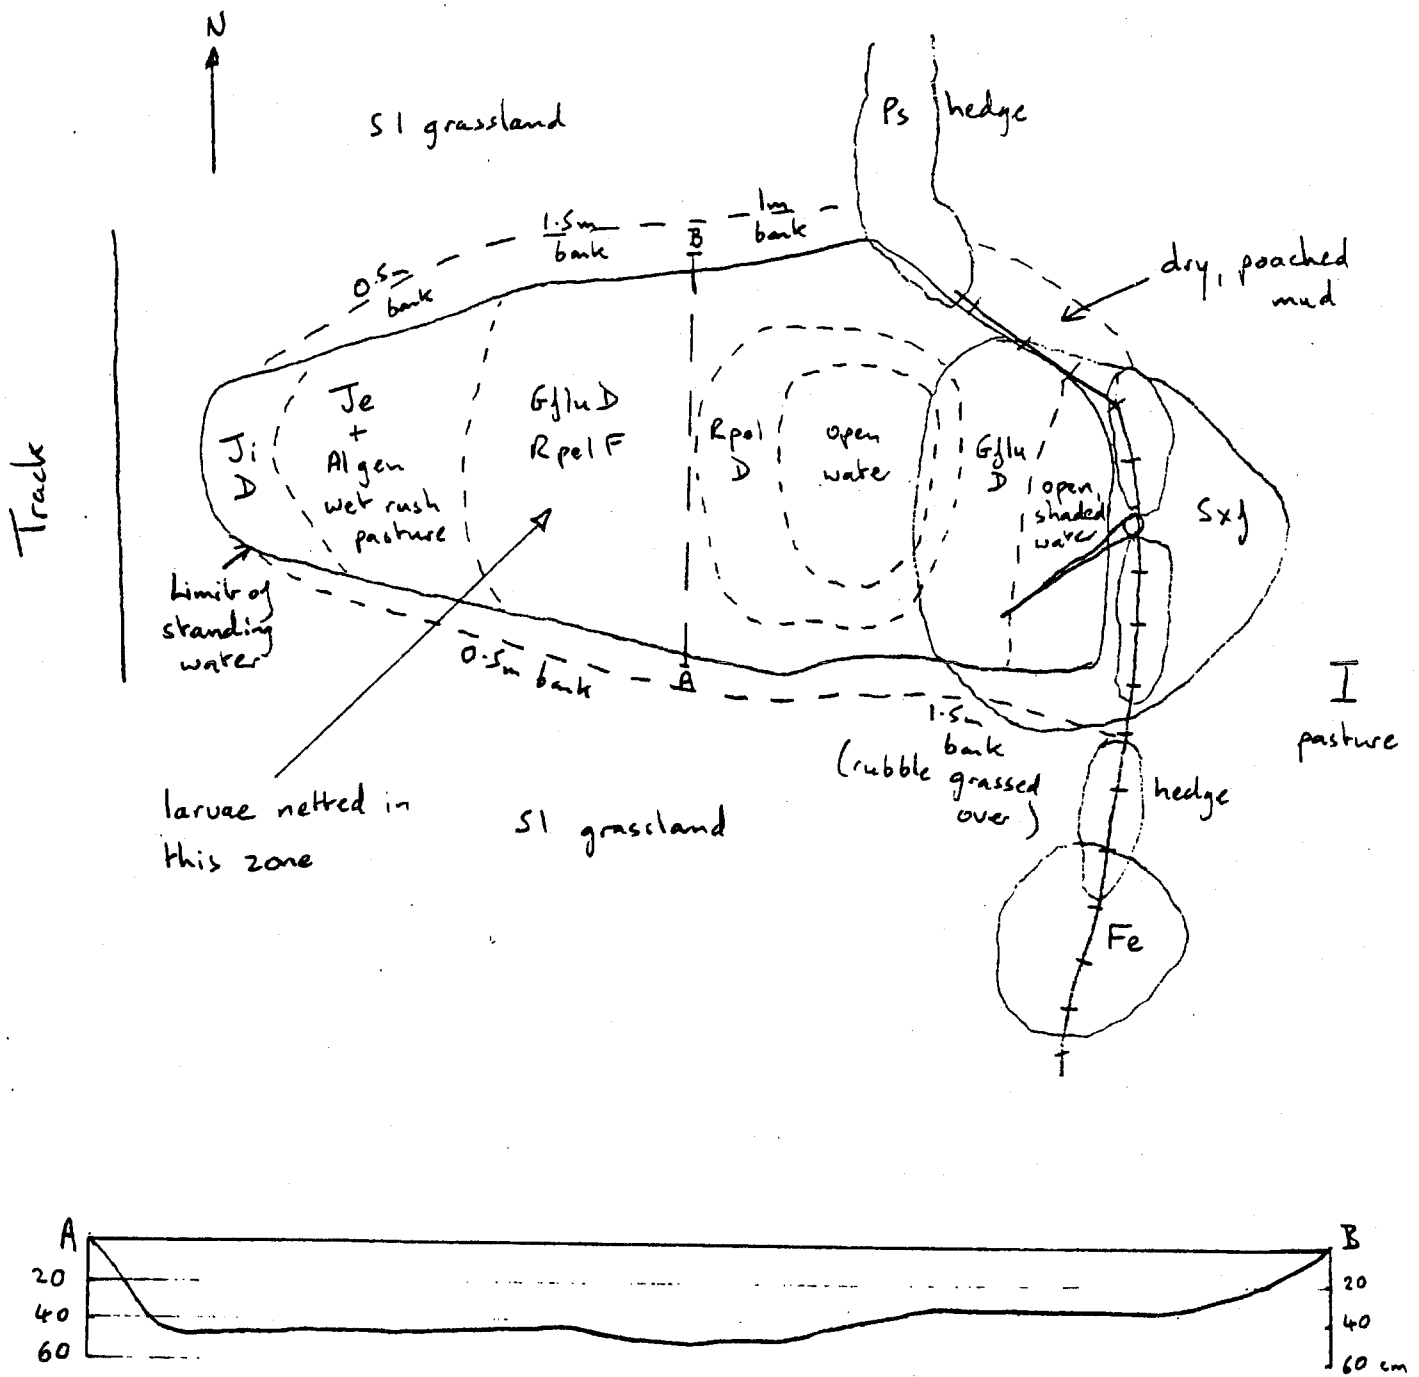 N
SI grassland
Ps hedge
1.5m
bank
B
1m
bank
0.5m
bank
dry, poached
mud
Track
Ji
D
Je
+
Al gen
wet rush
pasture
Gflu D
Rpel F
Rpel
D
open
water
Gflu
D
open,
shaded
water
Sxf
Limit of
standing
water
0.5m bank
A
1.5m
bank
(rubble grassed
over)
I
pasture
hedge
larvae netted in
this zone
SI grassland
Fe
A
B
20
40
60
20
40
60 cm